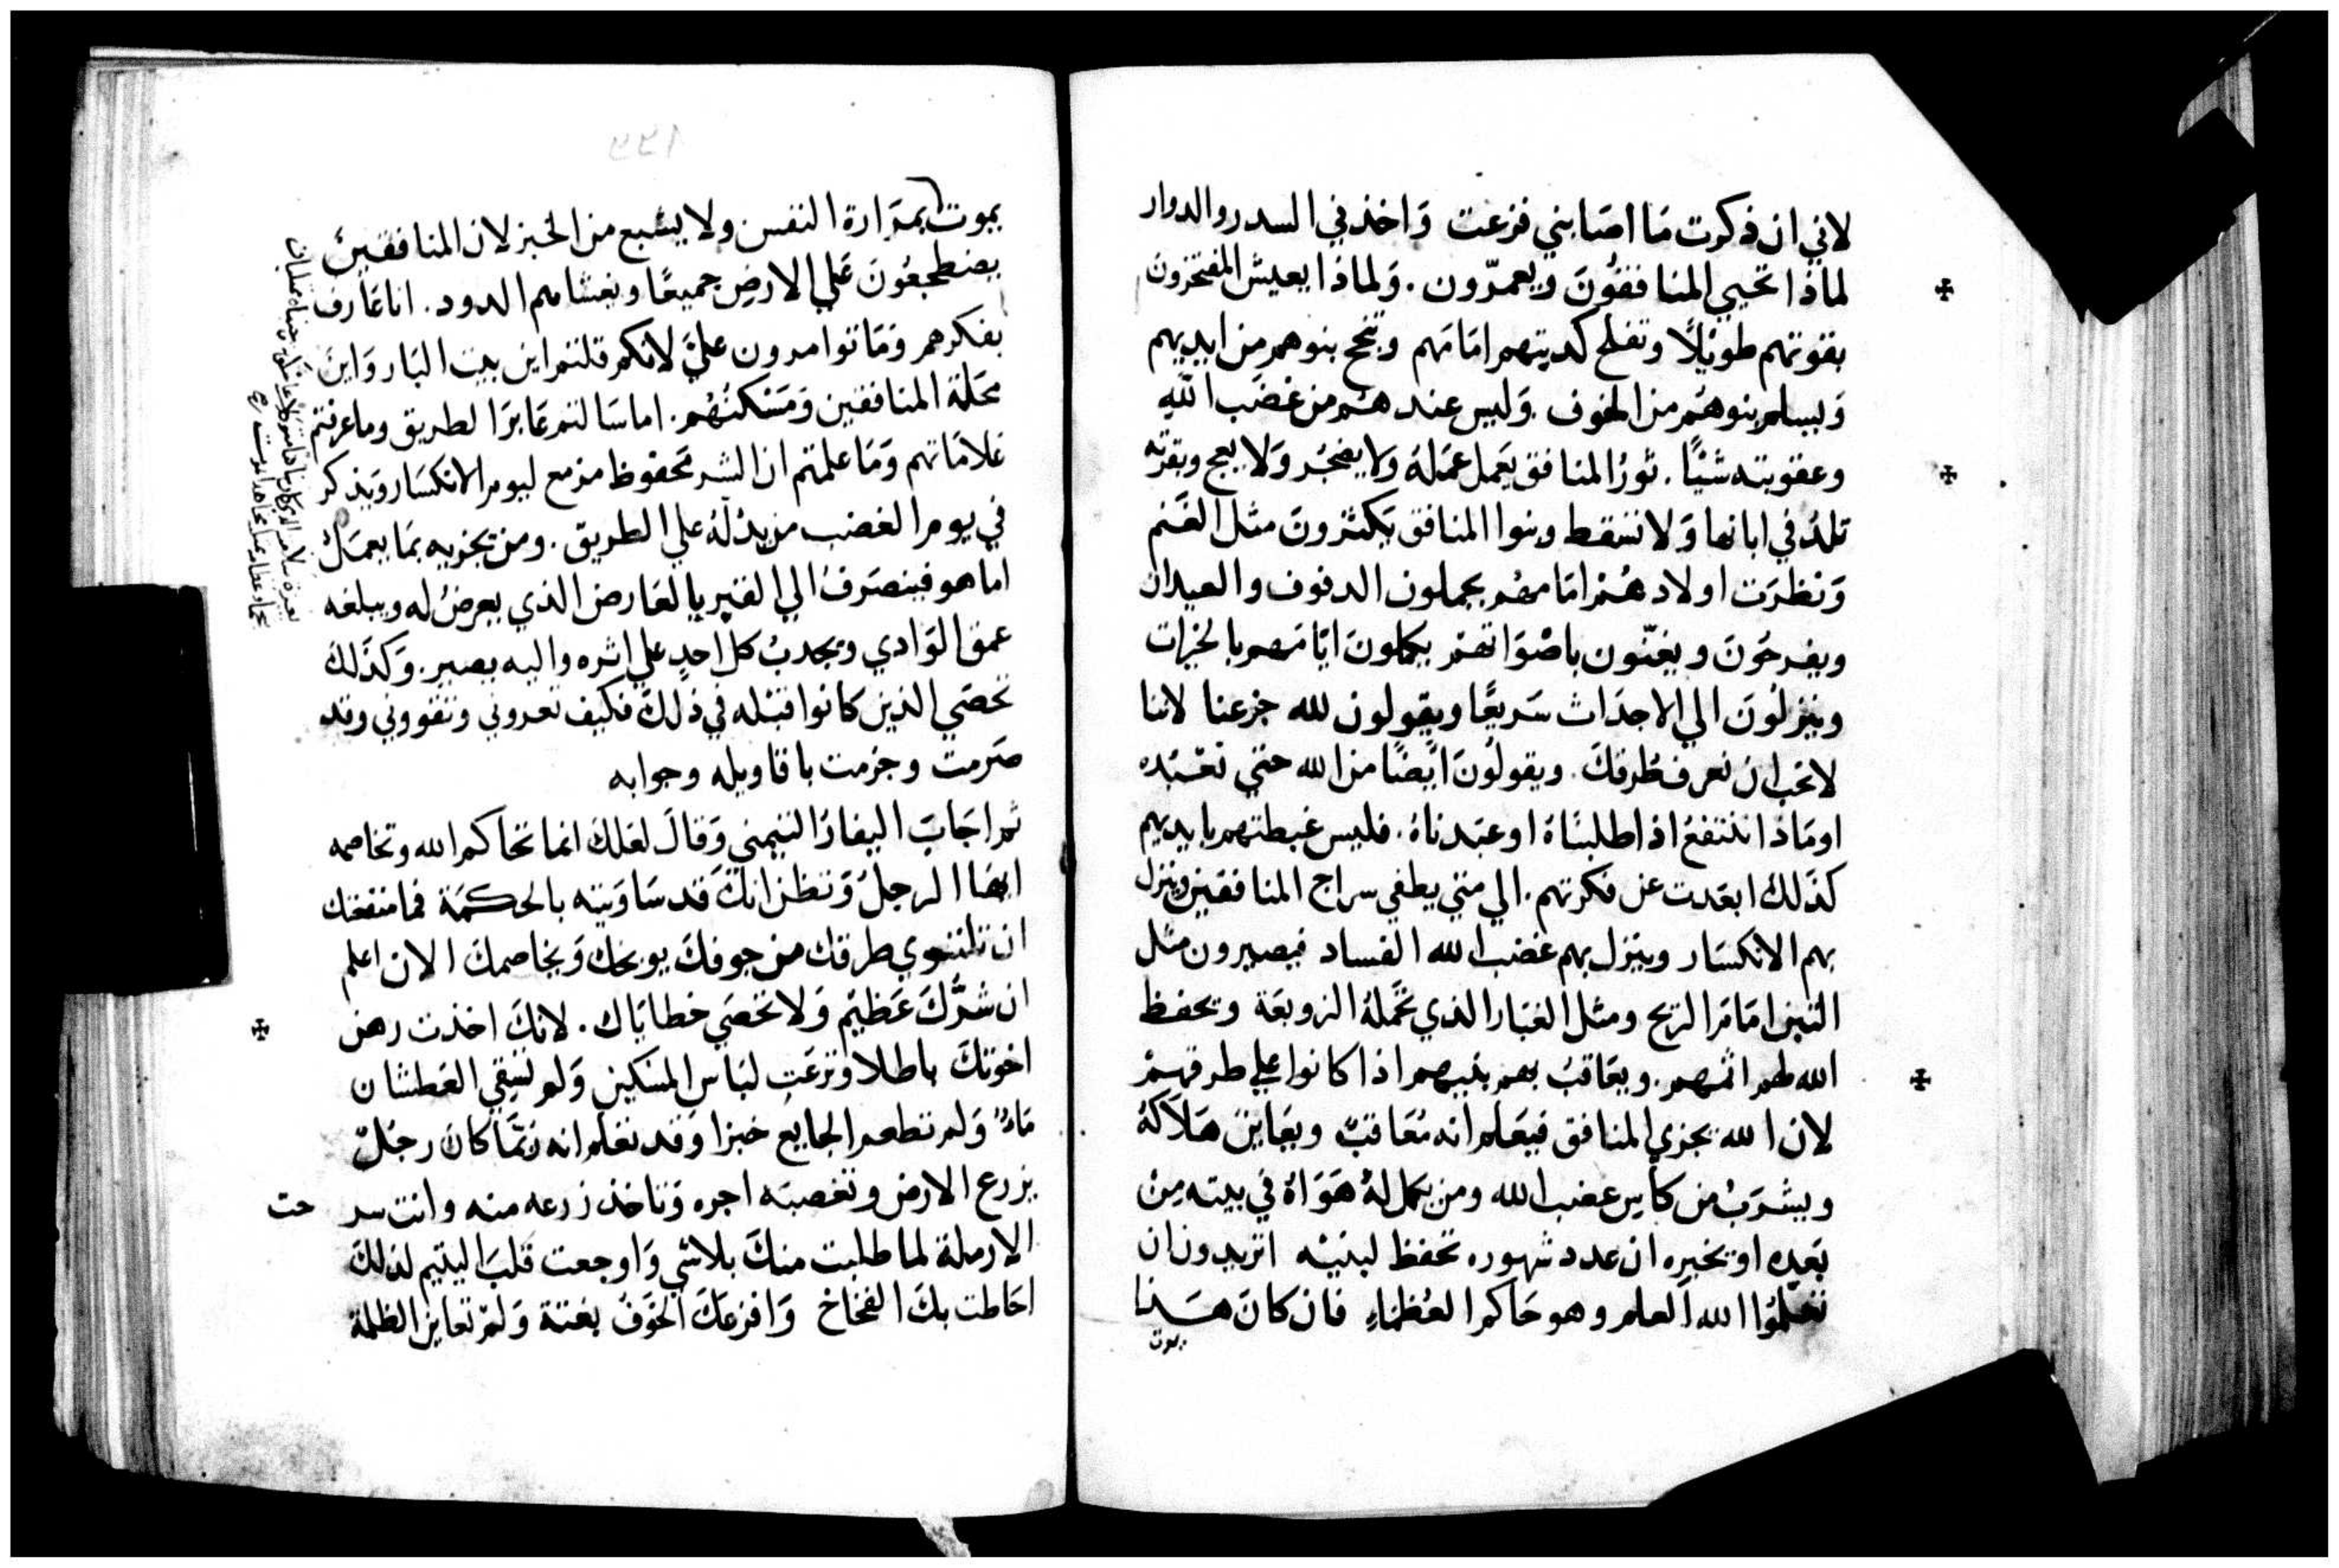 لاني ان ذكرت مَا اصَابني فزعت وَاخذني السدر والدوار
لماذا تحيي المنافقُونَ ويعمّرون. وَلماذا يعيش المفتخرون
بقوتهم طويلًا وتفلح كديتهم امَامَهم وتنجح بنوهم من ايديهم
وَيسلم بنوهُم من الخوف. وَليس عندهُم من غضَب اللّهِ
وعقوبته شيًا. ثورُ المنافق يَعمل عمَلهُ وَلا يضجُر وَلا يعج وبقرته
تلدُ في ابانها وَلا تسَقط وبنوا المنافق يَكثرونَ مثل الغَنم
وَنظرَت اولادهُم امَامهُم يحملون الدفوف والعيدان
ويفرحَونَ ويغنّون باصْوَاتهم يكملونَ ايّامَهم بالخيرات
وينزلُونَ الي الاجدَاث سَريعًا ويقولون لله جزعنا لاننا
لا نحَب ان نعرف طُرقكَ. ويقولُونَ ايَضًا من الله حتي نعْبُده
اومَاذا ننتفعُ اذا طلبنَاهُ اوعبَدناهُ. فليس غبطتهم بايديهم
كذَلك ابعَدت عن فكرتهم. الي متي يطفي سراج المنافقين وينزل
بهم الانكسَار وينزل بهم غضب الله الفساد فيصيرون مثل
التبن امَامَ الريح ومثل الغبَار الذي تحَملهُ الزوبعَة ويحفظ
الله لهم اثمهم. ويعَاقبُ بهم بنيهم اذا كانوا علي طرقهمْ
لان الله يجزي المنافق فيعَلم انه مُعَاقبٌ ويعَاين هَلَاكهُ
ويشرَبُ من كاس غضب الله ومن يكمل لهُ هَوَاهُ في بيته مِن
بَعدِه اوتخيره ان عدد شهوره تحفظ لبنيْه اتريدون ان
تعَلّموا الله العلم وهو حَاكم العُظمَاءِ فان كانَ هـَـذا
يموت
٢٢١
يموت بمرَارة النفس ولا يشبع من الخبز لان المنافقين
يضطجعُونَ عَلي الارض جميعًا ويغشاهم الدود. انا عَارف
بفكرهم وَمَا تَوامرون عليَّ لانكم قلتم اين بيت البَار وَاين
محَلة المنافقين وَمَسَكنُهُم. اما سَالتم عَابرَا لطريق وما عرفتم
علامَاتهم وَمَا علمتم ان الشر مَحفوظ مزمع ليوم الانكسَار وَيذكر
في يوم الغضب من يدُلهُ علي الطريق. ومن يجزيه بمَا يعمَل
اما هو فينصَرفُ الي القبر بالعَارض الذي يعرضُ له ويبلغه
عمق الوَادي ويجدبُ كل احدٍ علي اثره واليه يصير. وَكذَلك
تحصَي الذين كانوا قبْله في ذلكَ فكيف تعروني وتقووني وقد
صَرمت وجزمت باقاويله وجوابه
ثم اجَابَ اليفازُ التيمني وَقالَ لعَلكَ انما تحاكم الله وتخاصمه
ايها الرجلُ وَتظن انكَ قد سَاوَيته بالحكمَة فما منفعتك
ان تلتوي طرقك من جوفكَ يوبخك وَيخاصمكَ الان اعلم
ان شرَّكَ عَظيَم وَلا تحُصَي خطايَاك. لانكَ اخذت رهن
اخوتكَ باطلا ونزعَت لبَاس المسَكين وَلم تسَقي العَطشان
مَاءً وَلم تطعم الجايع خبزا وَقد نعَلم انه رُبَّمَا كان رجُلٌ
يزرع الارض وتغصبَه اجره وَتاخذ زرعه منه وانت سر
حت
الارملة لما طلبت منكَ بلاشي وَاوجعت قَلبَ اليتيم لذلكَ
احَاطت بكَ الفخاخ وَافزعَكَ الخوَفُ بغتة وَلم تعَاين الظلمة